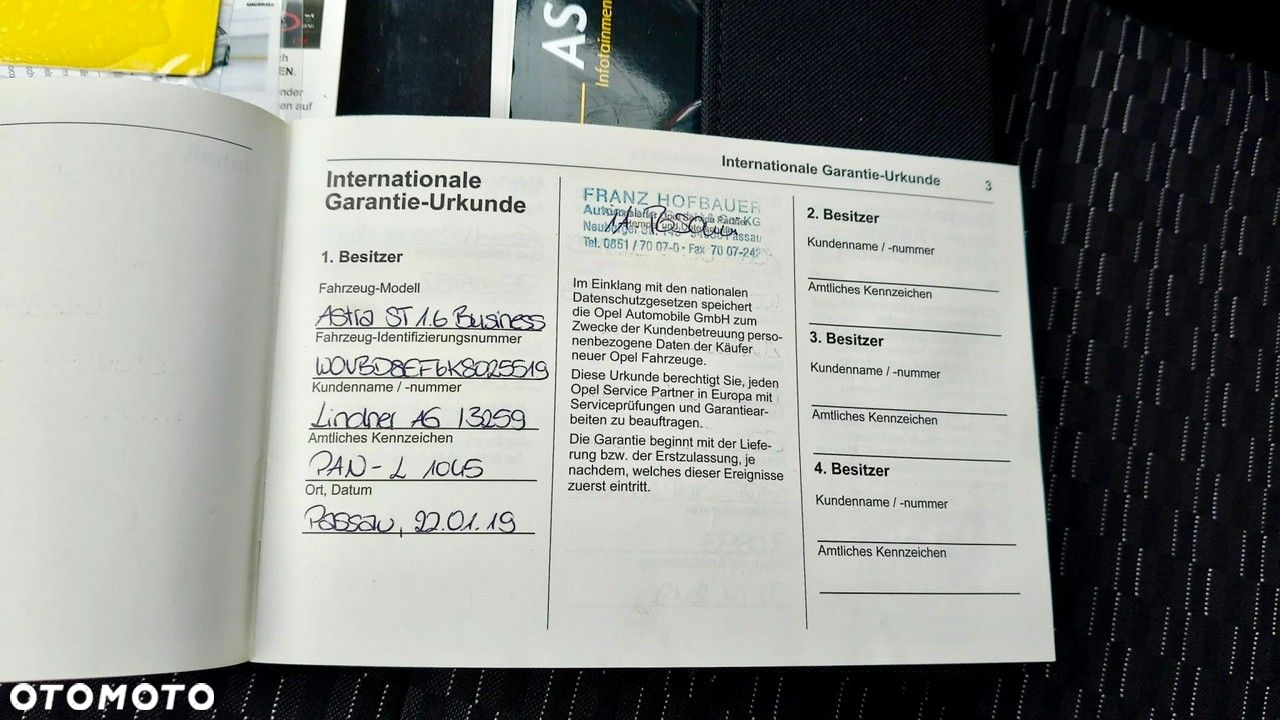 AS
Infotainmen
ch
EN.
nder
en auf
Internationale Garantie-Urkunde 3
Internationale
Garantie-Urkunde
1. Besitzer
Fahrzeug-Modell
Astra ST 1.6 Business
Fahrzeug-Identifizierungsnummer
W0VBD8EF6K8025519
Kundenname / -nummer
Lindner AG 13259
Amtliches Kennzeichen
PAN-L 1045
Ort, Datum
Passau, 22.01.19
FRANZ HOFBAUER
KG
Passau
Tel. 0851 / 70 07-0 · Fax 70 07-242
Im Einklang mit den nationalen
Datenschutzgesetzen speichert
die Opel Automobile GmbH zum
Zwecke der Kundenbetreuung perso-
nenbezogene Daten der Käufer
neuer Opel Fahrzeuge.
Diese Urkunde berechtigt Sie, jeden
Opel Service Partner in Europa mit
Serviceprüfungen und Garantiear-
beiten zu beauftragen.
Die Garantie beginnt mit der Liefe-
rung bzw. der Erstzulassung, je
nachdem, welches dieser Ereignisse
zuerst eintritt.
2. Besitzer
Kundenname / -nummer
Amtliches Kennzeichen
3. Besitzer
Kundenname / -nummer
Amtliches Kennzeichen
4. Besitzer
Kundenname / -nummer
Amtliches Kennzeichen
OTOMOTO